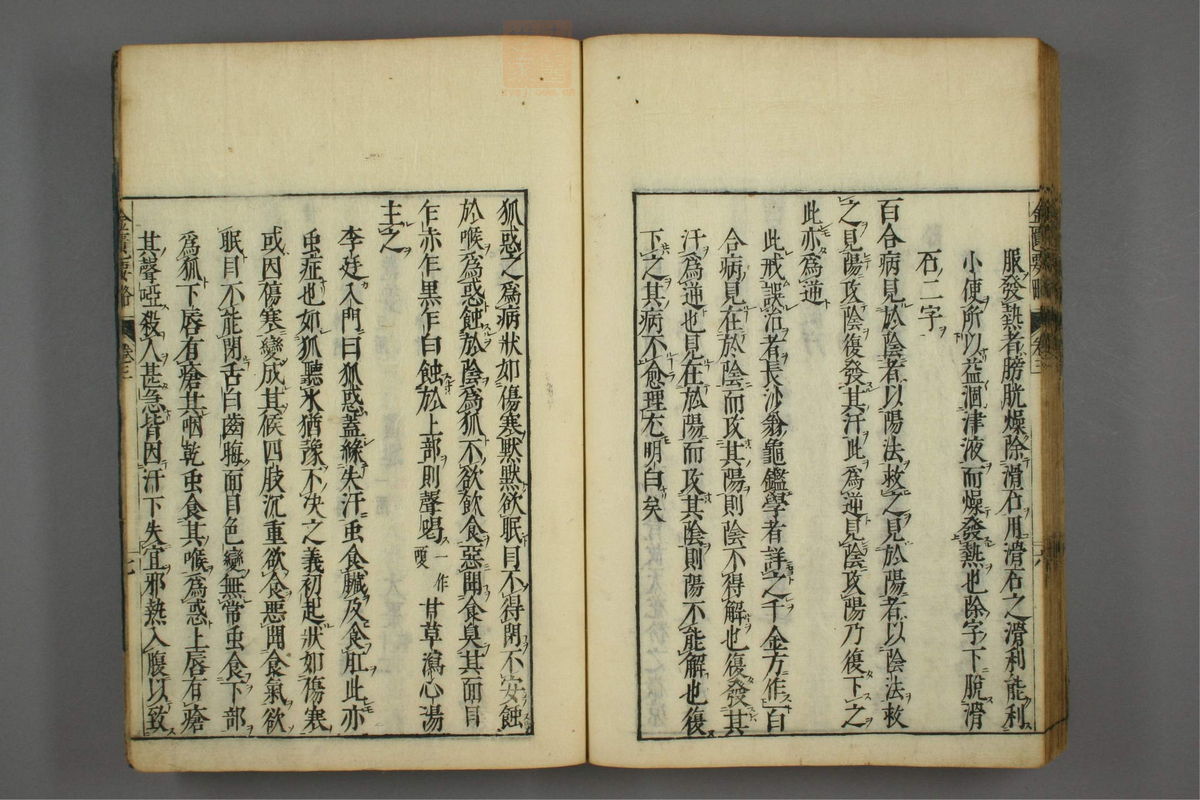 服發熱者膀胱燥除滑石用滑石之滑利能利
小便所以益涸津液而燥發熱也除字下脫滑
石二字
百合病見於陰者以陽法救之見於陽者以陰法救
之見陽攻陰復發其汗此為逆見陰攻陽乃復下之
此亦為逆
此戒誤治者長沙翁龜鑑學者詳之千金方作百
合病見在於陰而攻其陽則陰不得解也復發其
汗為逆也見在於陽而攻其陰則陽不能解也復
下之其病不愈理尤明白矣
狐惑之為病狀如傷寒默默欲眠目不得閉不安蝕
於喉為惑蝕於陰為狐不欲飲食惡聞食臭其面目
乍赤乍黑乍白蝕於上部則聲喝一作嗄甘草瀉心湯
主之
李廷入門曰狐惑蓋緣失汗虫食臟及食肛此亦
虫症也如狐聽氷猶豫不決之義初起狀如傷寒
或因傷寒變成其候四肢沉重欲食惡聞食氣欲
眠目不能閉舌白齒晦面目色變無常虫食下部
為狐下唇有瘡其咽乾虫食其喉為惑上唇有瘡
其聲啞殺人甚急皆因汗下失宜邪熱入腹以致
金匱要略
卷三
六
金匱要略
卷三
七